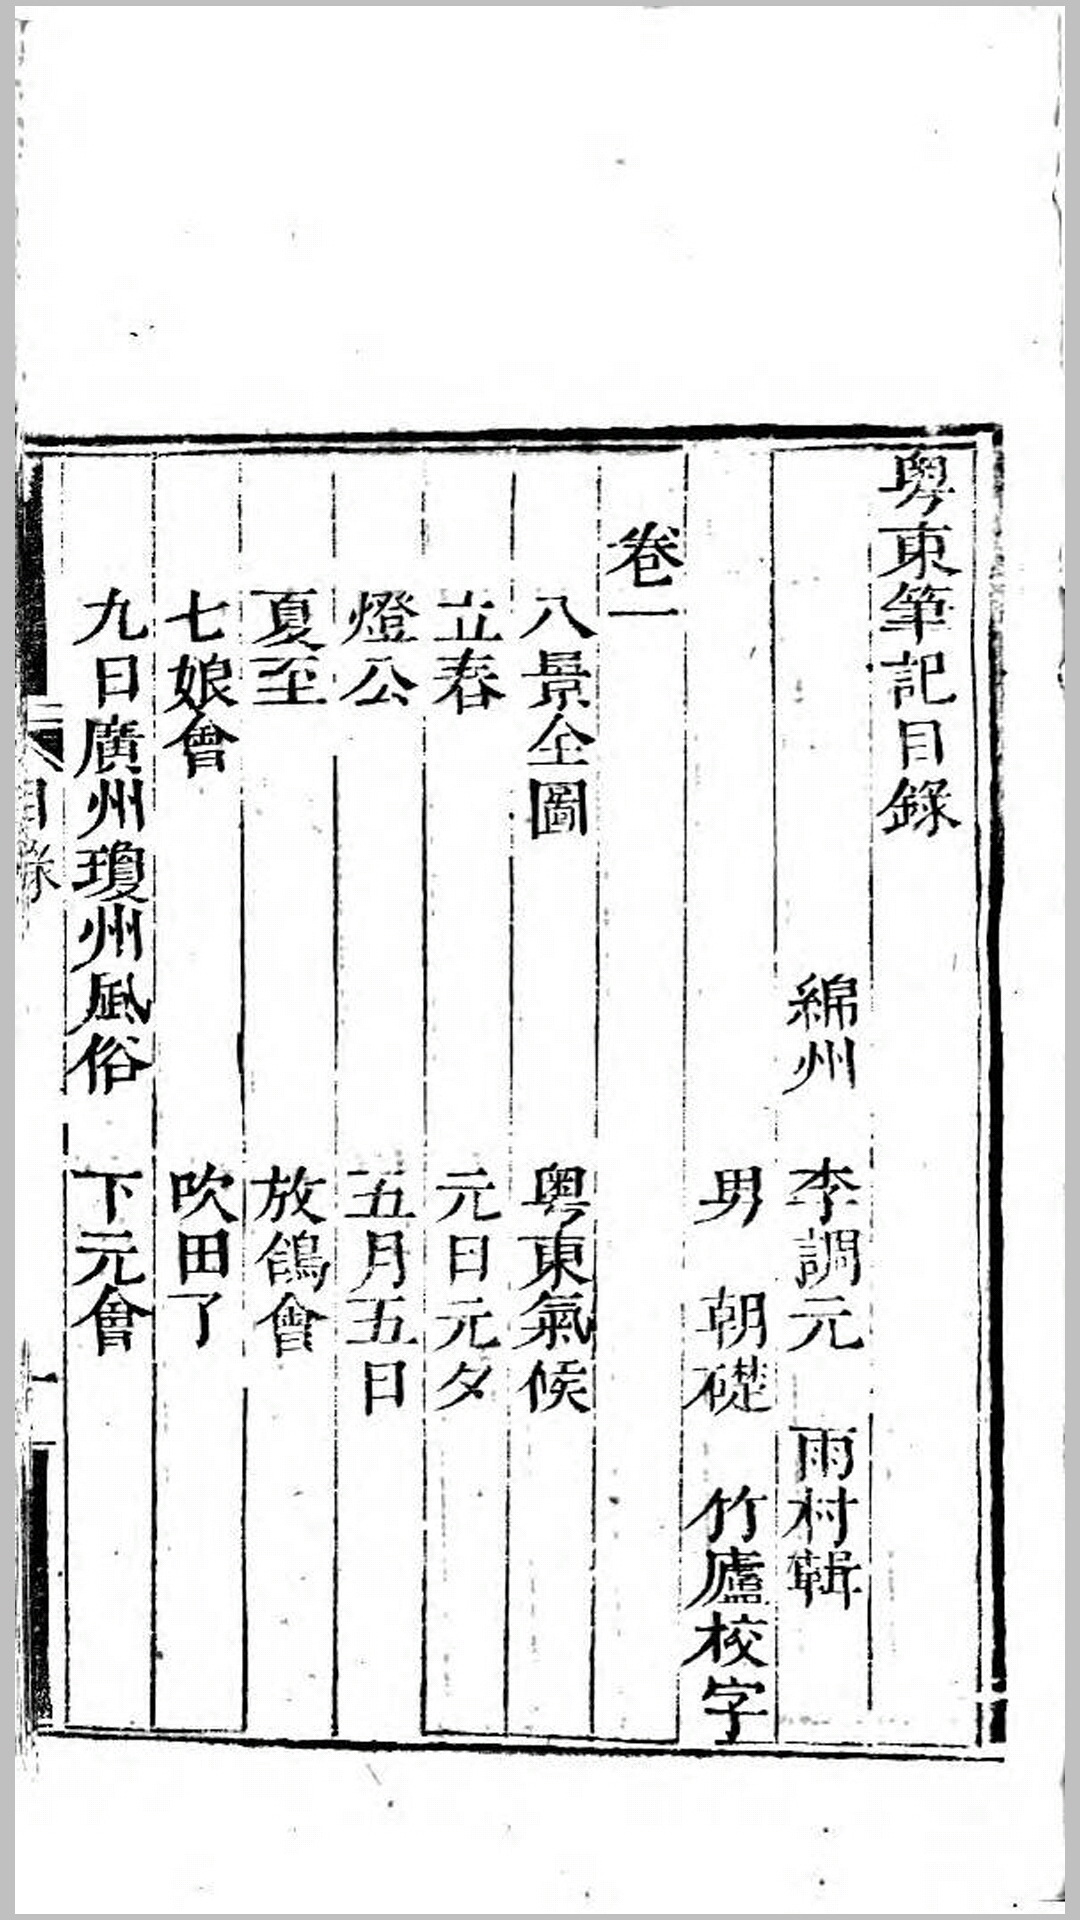 粵東筆記目錄
綿州 李調元 雨村輯
男 朝礎 竹廬校字
卷一
八景全圖 粵東氣候
立春 元日元夕
燈公 五月五日
夏至 放鴿會
七娘會 吹田了
九日廣州瓊州風俗 下元會
目錄 一